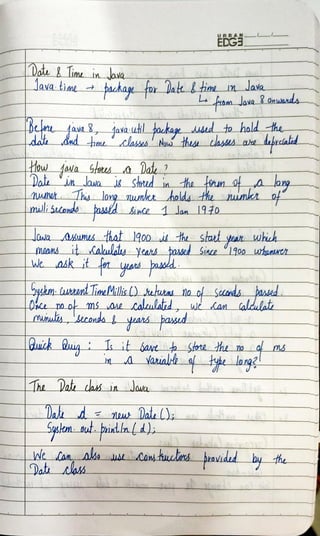 URBAN
EDGE
Date & Time in Java
Java.time → package for Date & time in Java
↳ from Java 8 onwards
Before java 8, java.util package used to hold the
date and time classes Now these classes are depricated
How java stores a Date?
Date in Java is stored in the form of a long
numer. This long number holds the number of
milliseconds passed since 1 Jan 1970
Java assumes that 1900 is the start year which
means it calculates years passed since 1900 whenever
we ask it for years passed.
System.currentTimeMillis() returns no of seconds passed.
Once no. of ms are calculated, we can calculate
minutes, seconds & years passed
Quick Quiz : Is it save to store the no. of ms
in a variable of type long?
The Date class in Java
Date d = new Date();
System.out.println(d);
We can also use constructors provided by the
Date class